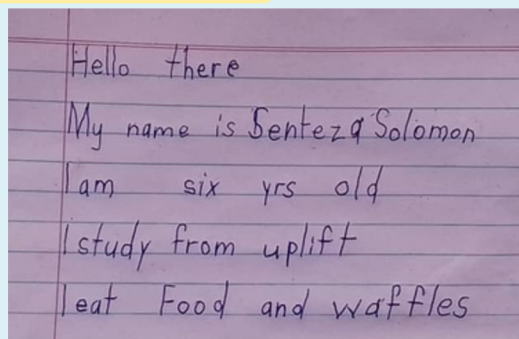 Hello there
My name is Senteza Solomon
I am six yrs old
I study from uplift
I eat Food and waffles